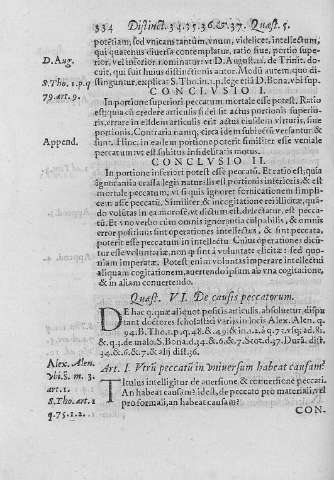 334 Distinct. 34. 35. 36. & 37. Quæst. 5.
potétiam, sed vnicam tantum, vnum, videlicet, intellectum,
qui quatenus diuersa contemplatur, ratio siue, portio supe-
rior, vel inferior nominatur vt D. August. 12. de Trinit. do-
D. Aug.
cuit, qui fuit huius distinctionis autor. Modũ autem quo di-
stinguuntur, explicat S. Tho. in. 1. p. lege etiã D. Bona. vbi sup.
S. Tho. 1. p. q
79. ar. 9.
CONCLVSIO I.
In portione superiori peccatum mortale esse potest. Ratio
est; quia cũ credere articulis fidei sit actus portionis superi-
ris, errare in eisdem articulis erit actus eiusdem virtutis, siue
portionis. Contraria namq; circa idem subiectũ versantur &
sunt. Hinc, in eadem portione poterit similiter esse veniale
Append.
peccatum vt est subitus infidelitatis motus.
CONCLVSIO II.
In portione inferiori potest esse peccatũ. Et ratio est; quia
ignorantia crassa legis naturalis est portionis inferioris, & est
mortale peccatum: vt si quis ignoret fornicationem simpli-
cem esse peccatũ. Similiter & incogitatione esse illicitæ, quã-
do volũtas in ea morose, vt dictum est, delectatur, est pecca-
tũ. Et vno verbo cum omnis ignorantia culpabilis, & omnis
error positiuus sint operationes intellectus, & sint peccata,
poterit esse peccatum in intellectu. Cuius operationes dicũ-
tur esse volũtariæ, non q̃ sint à voluntate elicitæ: sed quo-
niam imperatæ. Potest enim voluntas imperare intellectui
aliquam cogitationem, auertendo ipsum ab vna cogitatione,
& in aliam conuertendo.
Quæst. VI. De causis peccatorum.
DE hac q. quæ aliquot positis articulis, absoluetur, dispu
tant doctores scholastici variis in locis Alex. Alen. q.
94. B. Tho. 1. p. q. 48. & 49. & in. 1. 2. à q. 75. vsq; ad. 81.
&. q. 1. de malo. S. Bona. d. 34. q. 2. & 6. & 7. Scot. d. 37. Durã. dist.
34. & .6. & 7. & alij dist. 36.
Art. I. Vtrũ peccatũ in vniuersum habeat causam?
Alex. Alen.
vbi. S. m. 3.
art. 1.
S. Tho. art. 1
q. 75. 1. 2.
TItulus intelligitur de auersione & conuersione peccati.
An habeat causam? idest, de peccato pro materiali, vel
pro formali, an habeat causam?
CON-